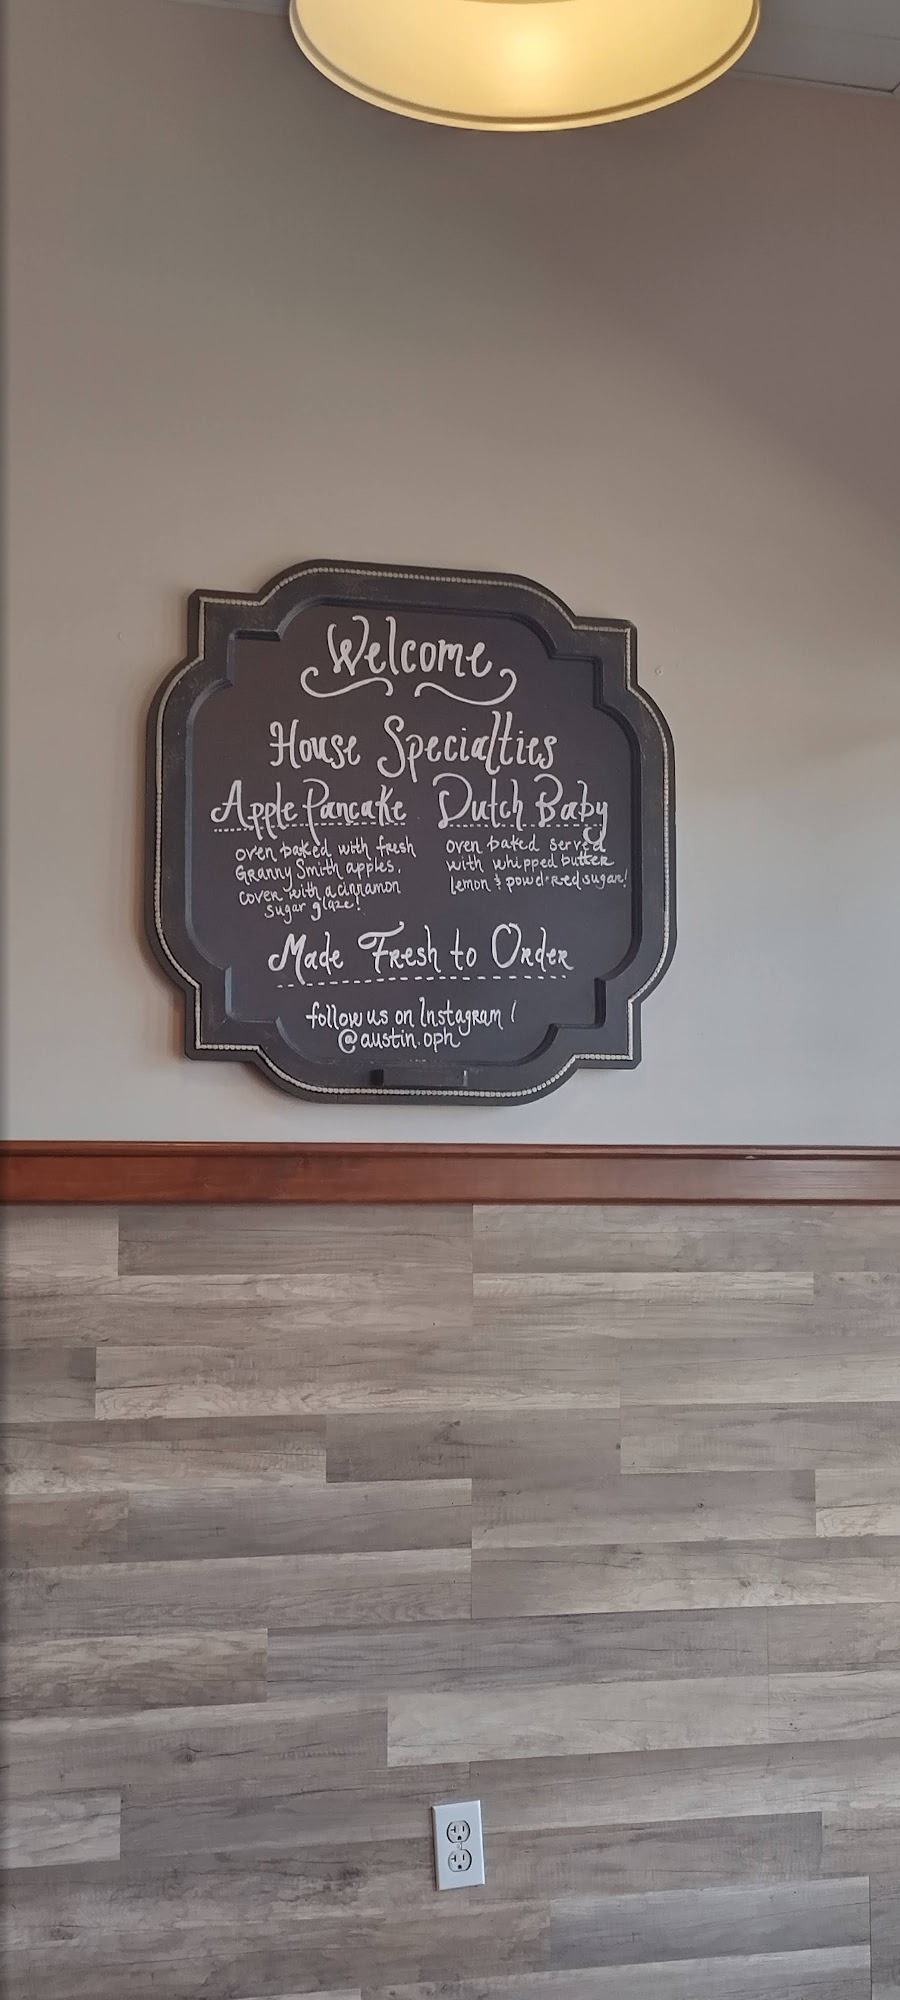 Welcome
House Specialties
Apple Pancake
oven baked with fresh
Granny Smith apples.
cover with a cinnamon
sugar glaze!
Dutch Baby
oven baked served
with whipped butter
lemon & powdered sugar!
Made Fresh to Order
follow us on Instagram!
@austin.oph